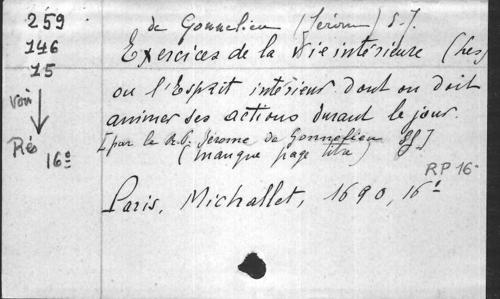 259
146
15
voir
Rés
16º
de Gonnelieu (Jérôme) S.J.
Exercices de la Vie intérieure (Les)
ou l'Esprit intérieur dont on doit
animer ses actions durant le jour.
[par le R.P. Jérome de Gonnelieu SJ]
(manque page titre)
RP 16º
Paris, Michallet, 1690, 16º